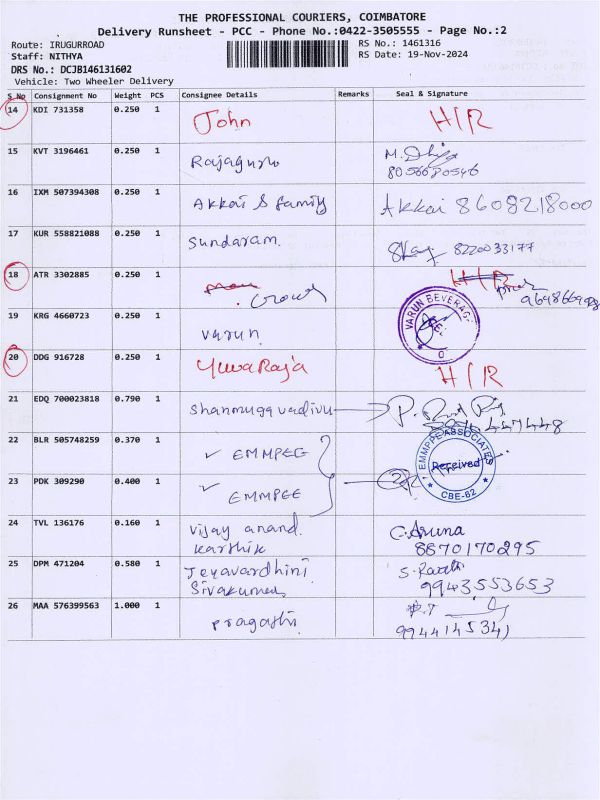 THE PROFESSIONAL COURIERS, COIMBATORE
Delivery Runsheet - PCC - Phone No.:0422-3505555 - Page No.:2
Route: IRUGURROAD
RS No.: 1461316
Staff: NITHYA
RS Date: 19-Nov-2024
DRS No.: DCJB146131602
Vehicle: Two Wheeler Delivery
S No Consignment No Weight PCS Consignee Details Remarks Seal & Signature
14 KDI 731358 0.250 1 John H/R
15 KVT 3196461 0.250 1 Rajaguru
8056680546
16 IXM 507394308 0.250 1 Akkai & family Akkai 8608218000
17 KUR 558821088 0.250 1 Sundaram 8220033177
18 ATR 3302885 0.250 1 H/R
19 KRG 4660723 0.250 1 Varun VARUN BEVERAG
20 DDG 916728 0.250 1 Yuva Raja H/R
21 EDQ 700023818 0.790 1 Shanmugavadivu
22 BLR 505748259 0.370 1 ✓ EMMPEE EMMPPE ASSOCIATES
Received
CBE-62
23 PDK 309290 0.400 1 ✓ EMMPEE
24 TVL 136176 0.160 1 Vijay anand C. Aruna
Karthik 8870170295
25 DPM 471204 0.580 1 Jeyavardhini S. Rathi
Sivakumar 9943553653
26 MAA 576399563 1.000 1 Pragathi
9944145341